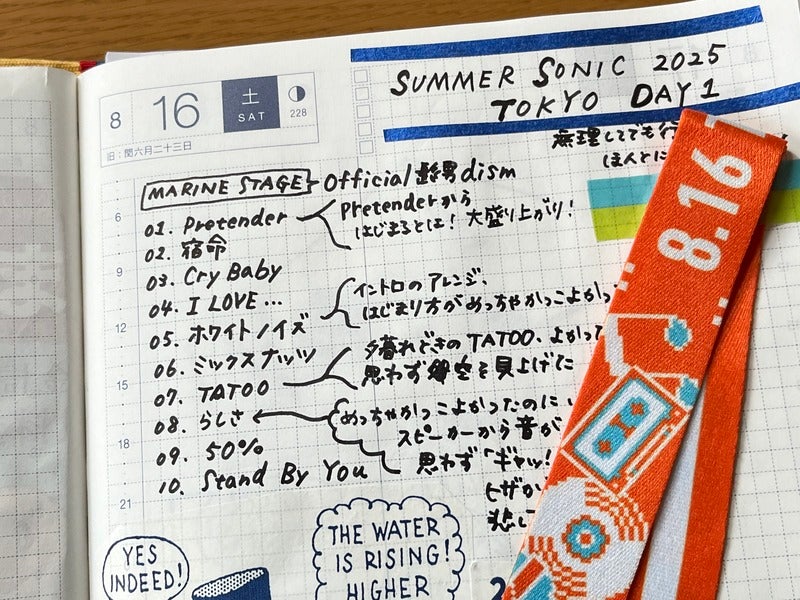 8 16 土 SAT 228
旧:閏六月二十三日
SUMMER SONIC 2025
TOKYO DAY 1
無理してでも行
ほんとに
MARINE STAGE Official 髭男dism
01. Pretender
Pretenderから
はじまるとは！大盛り上がり！
02. 宿命
03. Cry Baby
04. I LOVE...
イントロのアレンジ、
はじまり方がめっちゃかっこよかっ
05. ホワイトノイズ
06. ミックスナッツ
夕暮れどきのTATOO、よかって
07. TATOO
思わず空を見上げた
08. らしさ
めっちゃかっこよかったのに
スピーカーから音が
09. 50%
思わず「ギャッ!
10. Stand By You
ヒザか
悲し
6
9
12
15
18
21
YES
INDEED!
THE WATER
IS RISING!
HIGHER
2
8.16